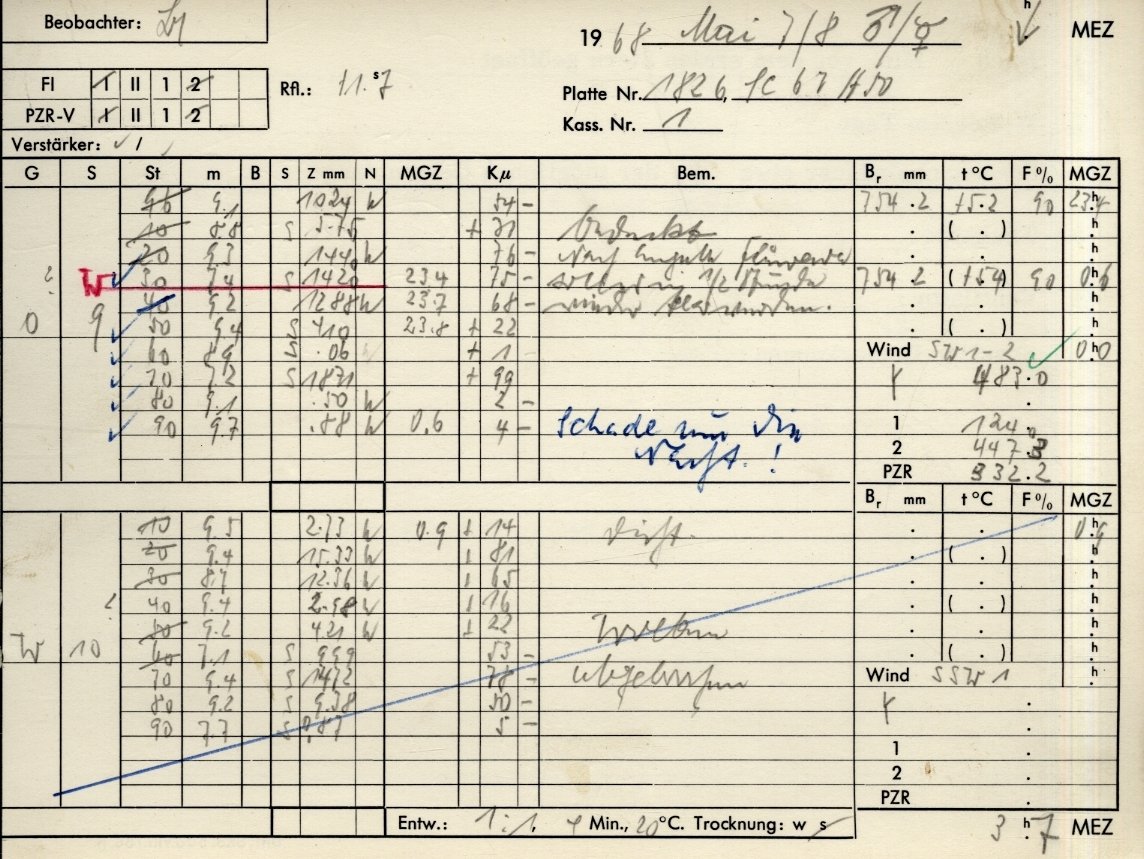 Beobachter:
1968 Mai 7/8 ♂/☿ h MEZ
FI I II 1 2 Rfl.: +1.ˢ7
PZR-V I II 1 2
Platte Nr. 1826,
Kass. Nr. 1
Verstärker: /
G S St m B S Z mm N MGZ Kμ Bem. Br mm t°C F% MGZ
90 9.1 1024 W 54 – 754.2 +5.2 90 23.ʰ4
10 8.8 S 5.75 + 31 bedeckt . ( . ) h
20 9.3 1440 W 76 – Nach
W 30 7.4 S 1420 23.4 75 – 1/2 Stunde 754.2 (+5.4) 90 0.ʰ6
40 9.2 1288 W 23.7 68 – wieder klar werden.
O 9 50 9.4 S 410 23.8 + 22 . ( . ) h
60 8.9 S .06 + 1 Wind SW 1–2 0.ʰ0
70 7.2 S 1871 + 99 γ 483.0
80 9.1 .50 W 2 –
90 9.7 .88 W 0.6 4 – Schade um die 1 124.
Nacht.! 2 447.3
PZR 332.2
Br mm t°C F% MGZ
10 9.5 2.73 W 0.9 + 14 dicht. 0.ʰ9
20 9.4 15.33 W 81 ( . ) h
30 8.7 12.36 W 65 h
? 40 9.4 2.98 W 16 ( . ) h
50 9.2 421 W + 22 Wolken h
W 10 60 7.1 S 999 53 – ( . ) h
70 9.4 S 1472 78 – abgebrochen Wind SSW 1 h
80 9.2 S 9.38 50 – γ
90 7.7 S 0.87 5 –
1
2
PZR
Entw.: 1:1, 4 Min., 20°C. Trocknung: w s
3.ʰ7 MEZ